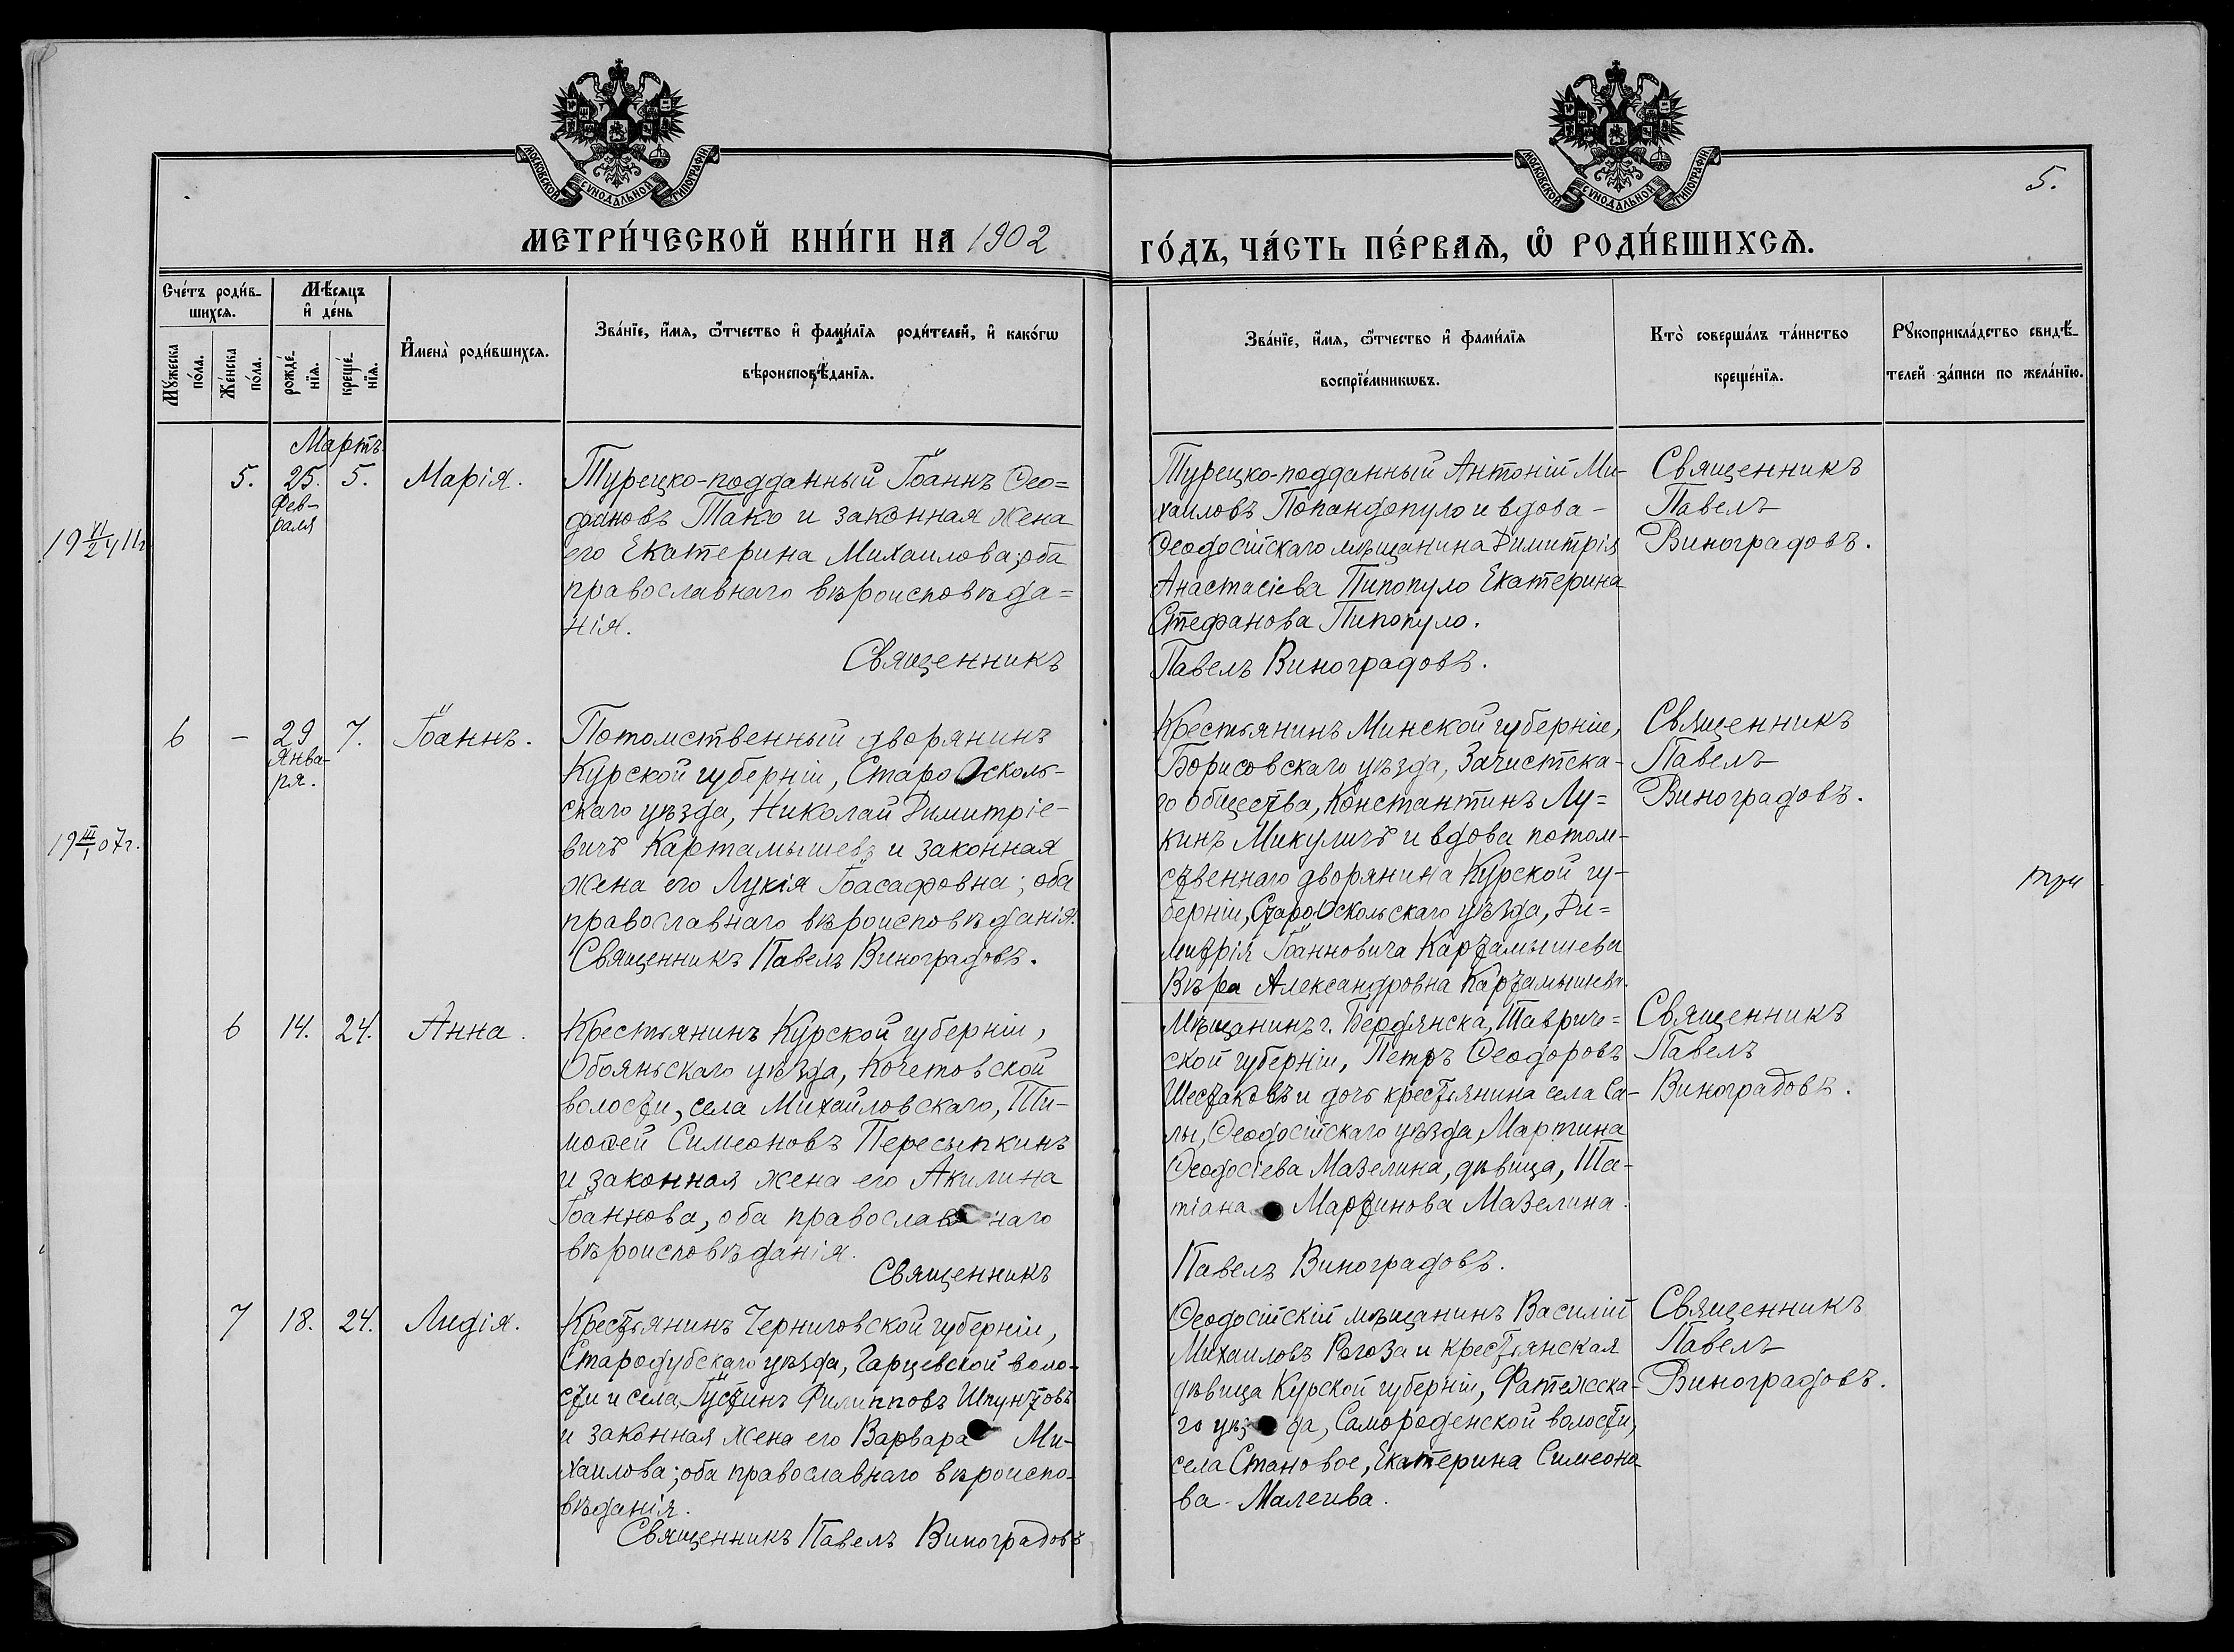 МОСКОВСКОЙ СУНОДАЛЬНОЙ ТИПОГРАФІИ
МОСКОВСКОЙ СУНОДАЛЬНОЙ ТИПОГРАФІИ
5.
МЕТРИ́ЧЕСКОЙ КНИ́ГИ НА 1902
ГО́ДЪ, ЧА́СТЬ ПЕ́РВАѦ, Ѿ РОДИ́ВШИХСѦ.
Сче́тъ роди́в-
шихсѧ.
Мꙋжеска
по́ла.
Же́нска
по́ла.
Мѣ́сяцъ
и҆ де́нь
рожде́-
нїѧ.
креще́-
нїѧ.
И҆мена̀ роди́вшихсѧ.
Зва́нїе, и҆́мя, ѻ҆́тчество и҆ фами́лїя роди́телей, и҆ како́гѡ
вѣроисповѣ́данїя.
Зва́нїе, и҆́мя, ѻ҆́тчество и҆ фами́лїя
воспрїе́мникѡвъ.
Кто̀ соверша́лъ та́инство
креще́нїя.
Рꙋкоприкла́дство свидѣ́-
телей за́писи по жела́нїю.
Мартъ.
5. 25. 5. Марія.
Фев-
раля
19 XI/24 11г.
Турецко-подданный Іоаннъ Ѳео=
фановъ Тако и законная жена
его Екатерина Михаилова; оба
православнаго вѣроисповѣда=
нія.
Священникъ
Турецко-подданный Антоній Ми-
хаиловъ Попандопуло и вдова -
Ѳеодосійскаго мѣщанина Димитрія
Анастасіева Пипопуло Екатерина
Стефанова Пипопуло.
Павелъ Виноградовъ.
Священникъ
Павелъ
Виноградовъ.
6 - 29 7. Іоаннъ.
Янва-
ря.
19 III/1 07г.
Потомственный дворянинъ
Курской губерніи, Старо Осколь-
скаго уѣзда, Николай Димитріе-
вичъ Картамышевъ и законная
жена его Лукія Іоасафовна; оба
православнаго вѣроисповѣданія.
Священникъ Павелъ Виноградовъ.
Крестьянинъ Минской губерніи,
Борисовскаго уѣзда, Зачистска-
го общества, Константинъ Лу=
кинъ Микуличъ и вдова потом-
ственнаго дворянина Курской гу-
берніи, СтароОскольскаго уѣзда, Ди=
митрія Іоанновича Картамышева
Вѣра Александровна Картамышева.
Священникъ
Павелъ
Виноградовъ.
три
6 14. 24. Анна.
Крестьянинъ Курской губерніи,
Обояньскаго уѣзда, Кочетовской
волости, села Михайловскаго, Ти-
моѳей Симеоновъ Пересыпкинъ
и законная жена его Акилина
Іоаннова, оба православнаго
вѣроисповѣданія.
Священникъ
Мѣщанинъ г. Бердянска, Тавриче=
ской губерніи, Петръ Ѳеодоровъ
Шестаковъ и дочь крестьянина села Са-
лы, Ѳеодосійскаго уѣзда, Мартина
Ѳеодосіева Мазелина, дѣвица, Та-
тіана Мартинова Мазелина.
Павелъ Виноградовъ.
Священникъ
Павелъ
Виноградовъ.
7 18. 24. Лидія.
Крестьянинъ Черниговской губерніи,
Стародубскаго уѣзда, Гарцевской воло-
сти и села, Іустинъ Филипповъ Шпунтовъ
и законная жена его Варвара Ми-
хаилова; оба православнаго вѣроиспо-
вѣданія.
Священникъ Павелъ Виноградовъ
Ѳеодосійскій мѣщанинъ Василій
Михаиловъ Рагоза и крестьянская
дѣвица Курской губерніи, Фатежска-
го уѣзда, Самороденской волости,
села Становое, Екатерина Симеоно
ва Малеива.
Священникъ
Павелъ
Виноградовъ.